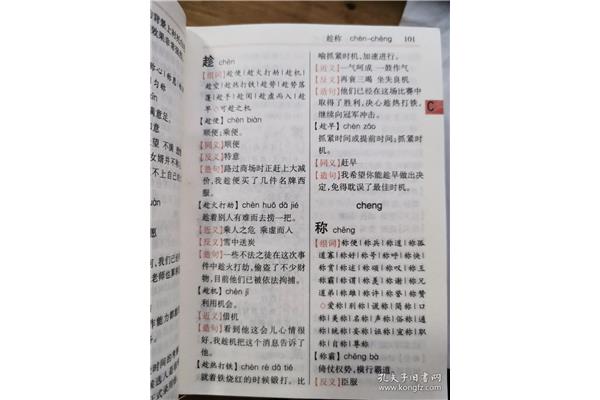 趁称 chèn-chēng 101
趁 chèn
【组词】趁便|趁火打劫|趁机|
趁空|趁热打铁|趁势|趁势落
篷|趁手|趁闲|趁虚而入|趁
早◇可趁之机
【趁便】chèn biàn
顺便;乘便。
【同义】顺便
【反义】特意
【造句】路过商场时正赶上大减
价,我趁便买了几件名牌西
服。
【趁火打劫】chèn huǒ dǎ jié
趁着别人有难而去捞一把。
【近义】乘人之危 乘虚而入
【反义】雪中送炭
【造句】一些不法之徒在这次事
件中趁火打劫,偷盗了不少财
物,目前他们已被依法拘捕。
【趁机】chèn jī
利用机会。
【近义】借机
【造句】看到他这会儿心情很
好,我趁机把这个消息告诉了
他。
【趁热打铁】chèn rè dǎ tiě
就着铁烧红的时候锻打。比
喻抓紧时机,加速进行。
【近义】一气呵成 一鼓作气
【反义】再衰三竭 坐失良机
【造句】他们已经在这场比赛中
取得了胜利,决心趁热打铁,
继续向冠军冲击。
【趁早】chèn zǎo
抓紧时间或提前时间;抓紧时
机。
【同义】赶早
【造句】我希望你能趁早做出决
定,免得耽误了最佳时机。
C
cheng
称 chēng
【组词】称便|称兵|称道|称孤
道寡|称好|称号|称呼|称快|
称赏|称述|称颂|称叹|称王
称霸|称谓|称羡|称谢|称兄
道弟|称雄|称许|称誉|称赞
◇爱称|别称|谎称|简称|口
称|美称|名称|声称|俗称|通
称|统称|妄称|诬称|宣称|职
称|自称|尊称
【称霸】chēng bà
倚仗权势,横行霸道。
【反义】臣服
孔夫子旧书网